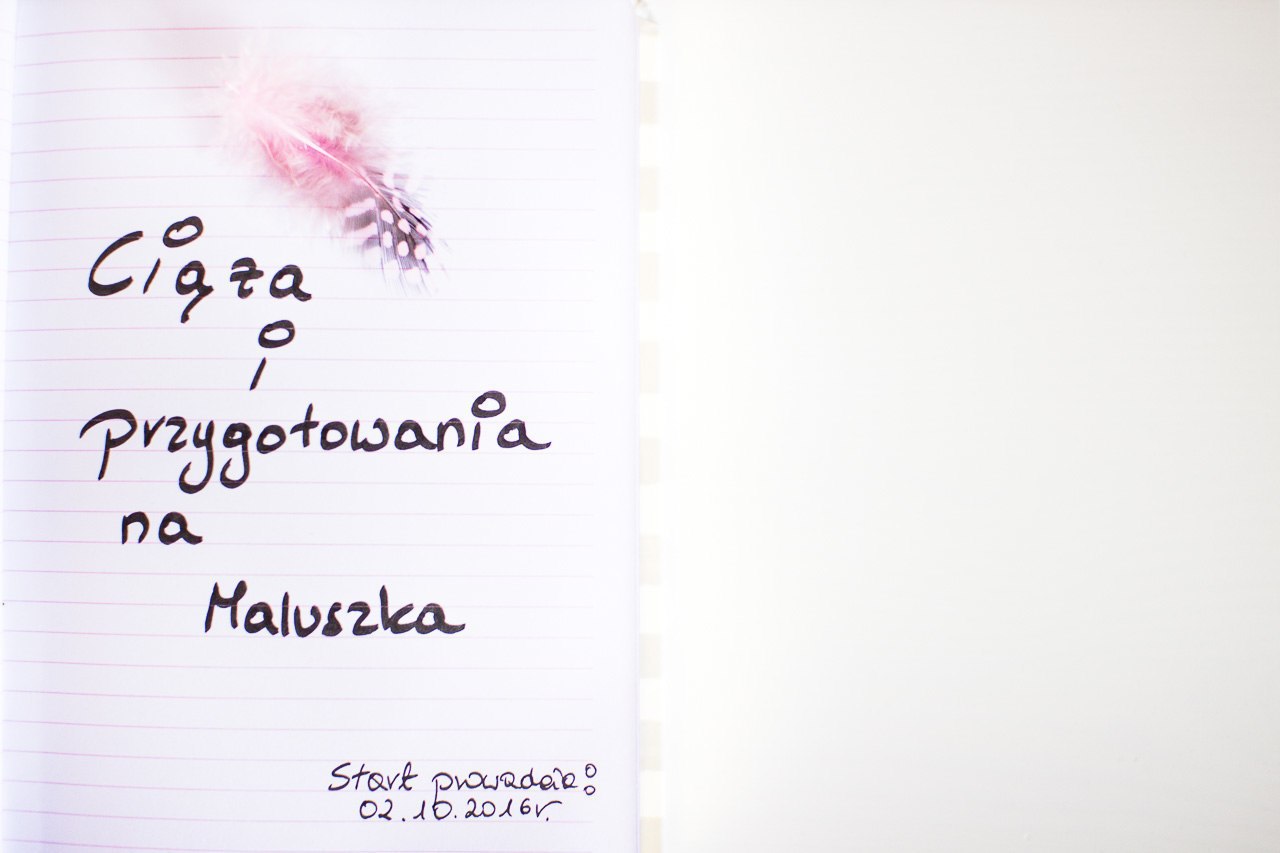 Ciąża
i
przygotowania
na
Maluszka
Start prowadzenia:
02.10.2016r.